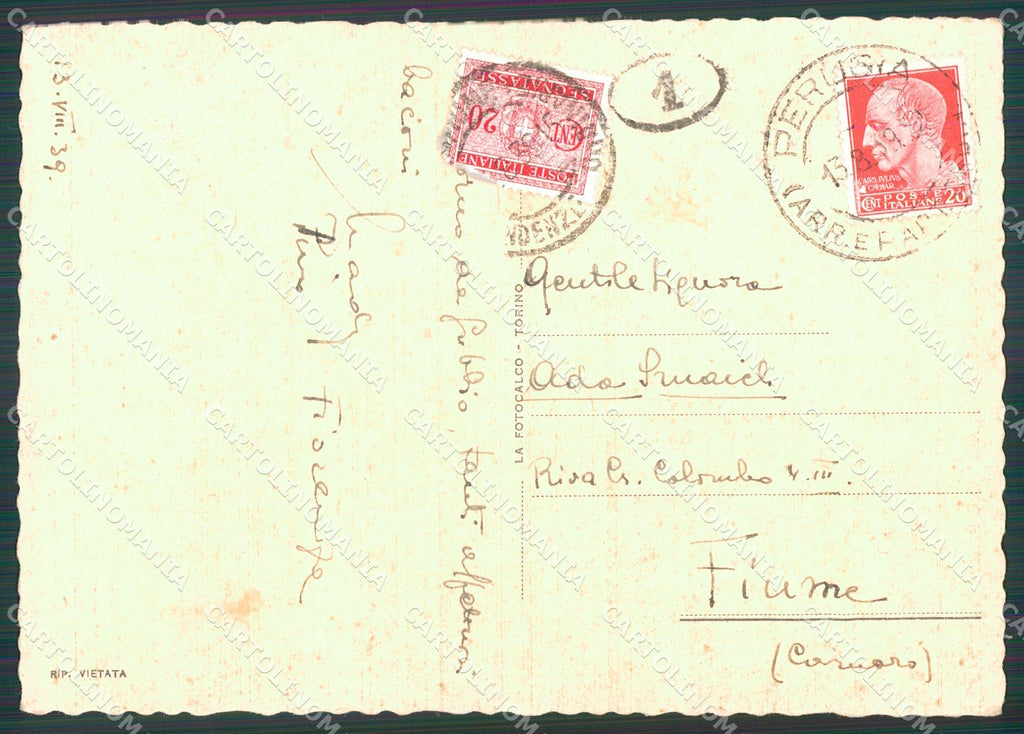 13.VIII.39.
Ricordo da Gubbio, tanti affettuosi
bacioni
Pino Fiorenza
SEGNATASSE
CENT 20
POSTE ITALIANE
1
PERUGIA
13.8.39
(ARR. E PAR
CAIVS IVLIVS
CAESAR
CENT POSTE ITALIANE 20
Gentile Signora
Ada Smaich
Riva Cr. Colombo 4.III.
Fiume
(Carnaro)
LA FOTOCALCO - TORINO
RIP. VIETATA
CARTOLINOMANIA